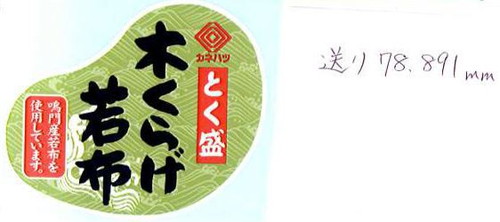 カネハツ
とく盛
木くらげ
若布
鳴門産若布を
使用しています。
送り 78.891mm